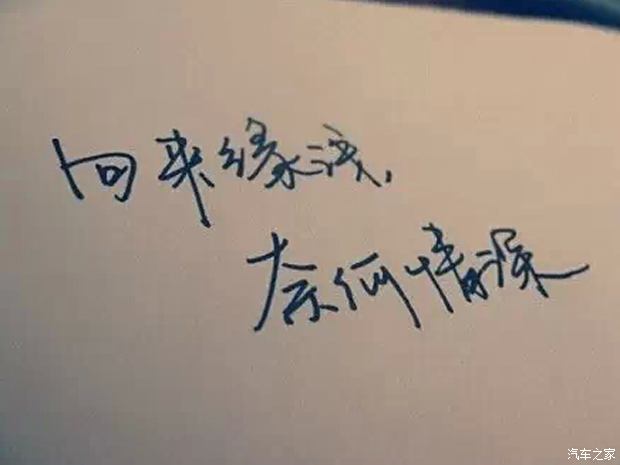 向来缘浅,
奈何情深
汽车之家